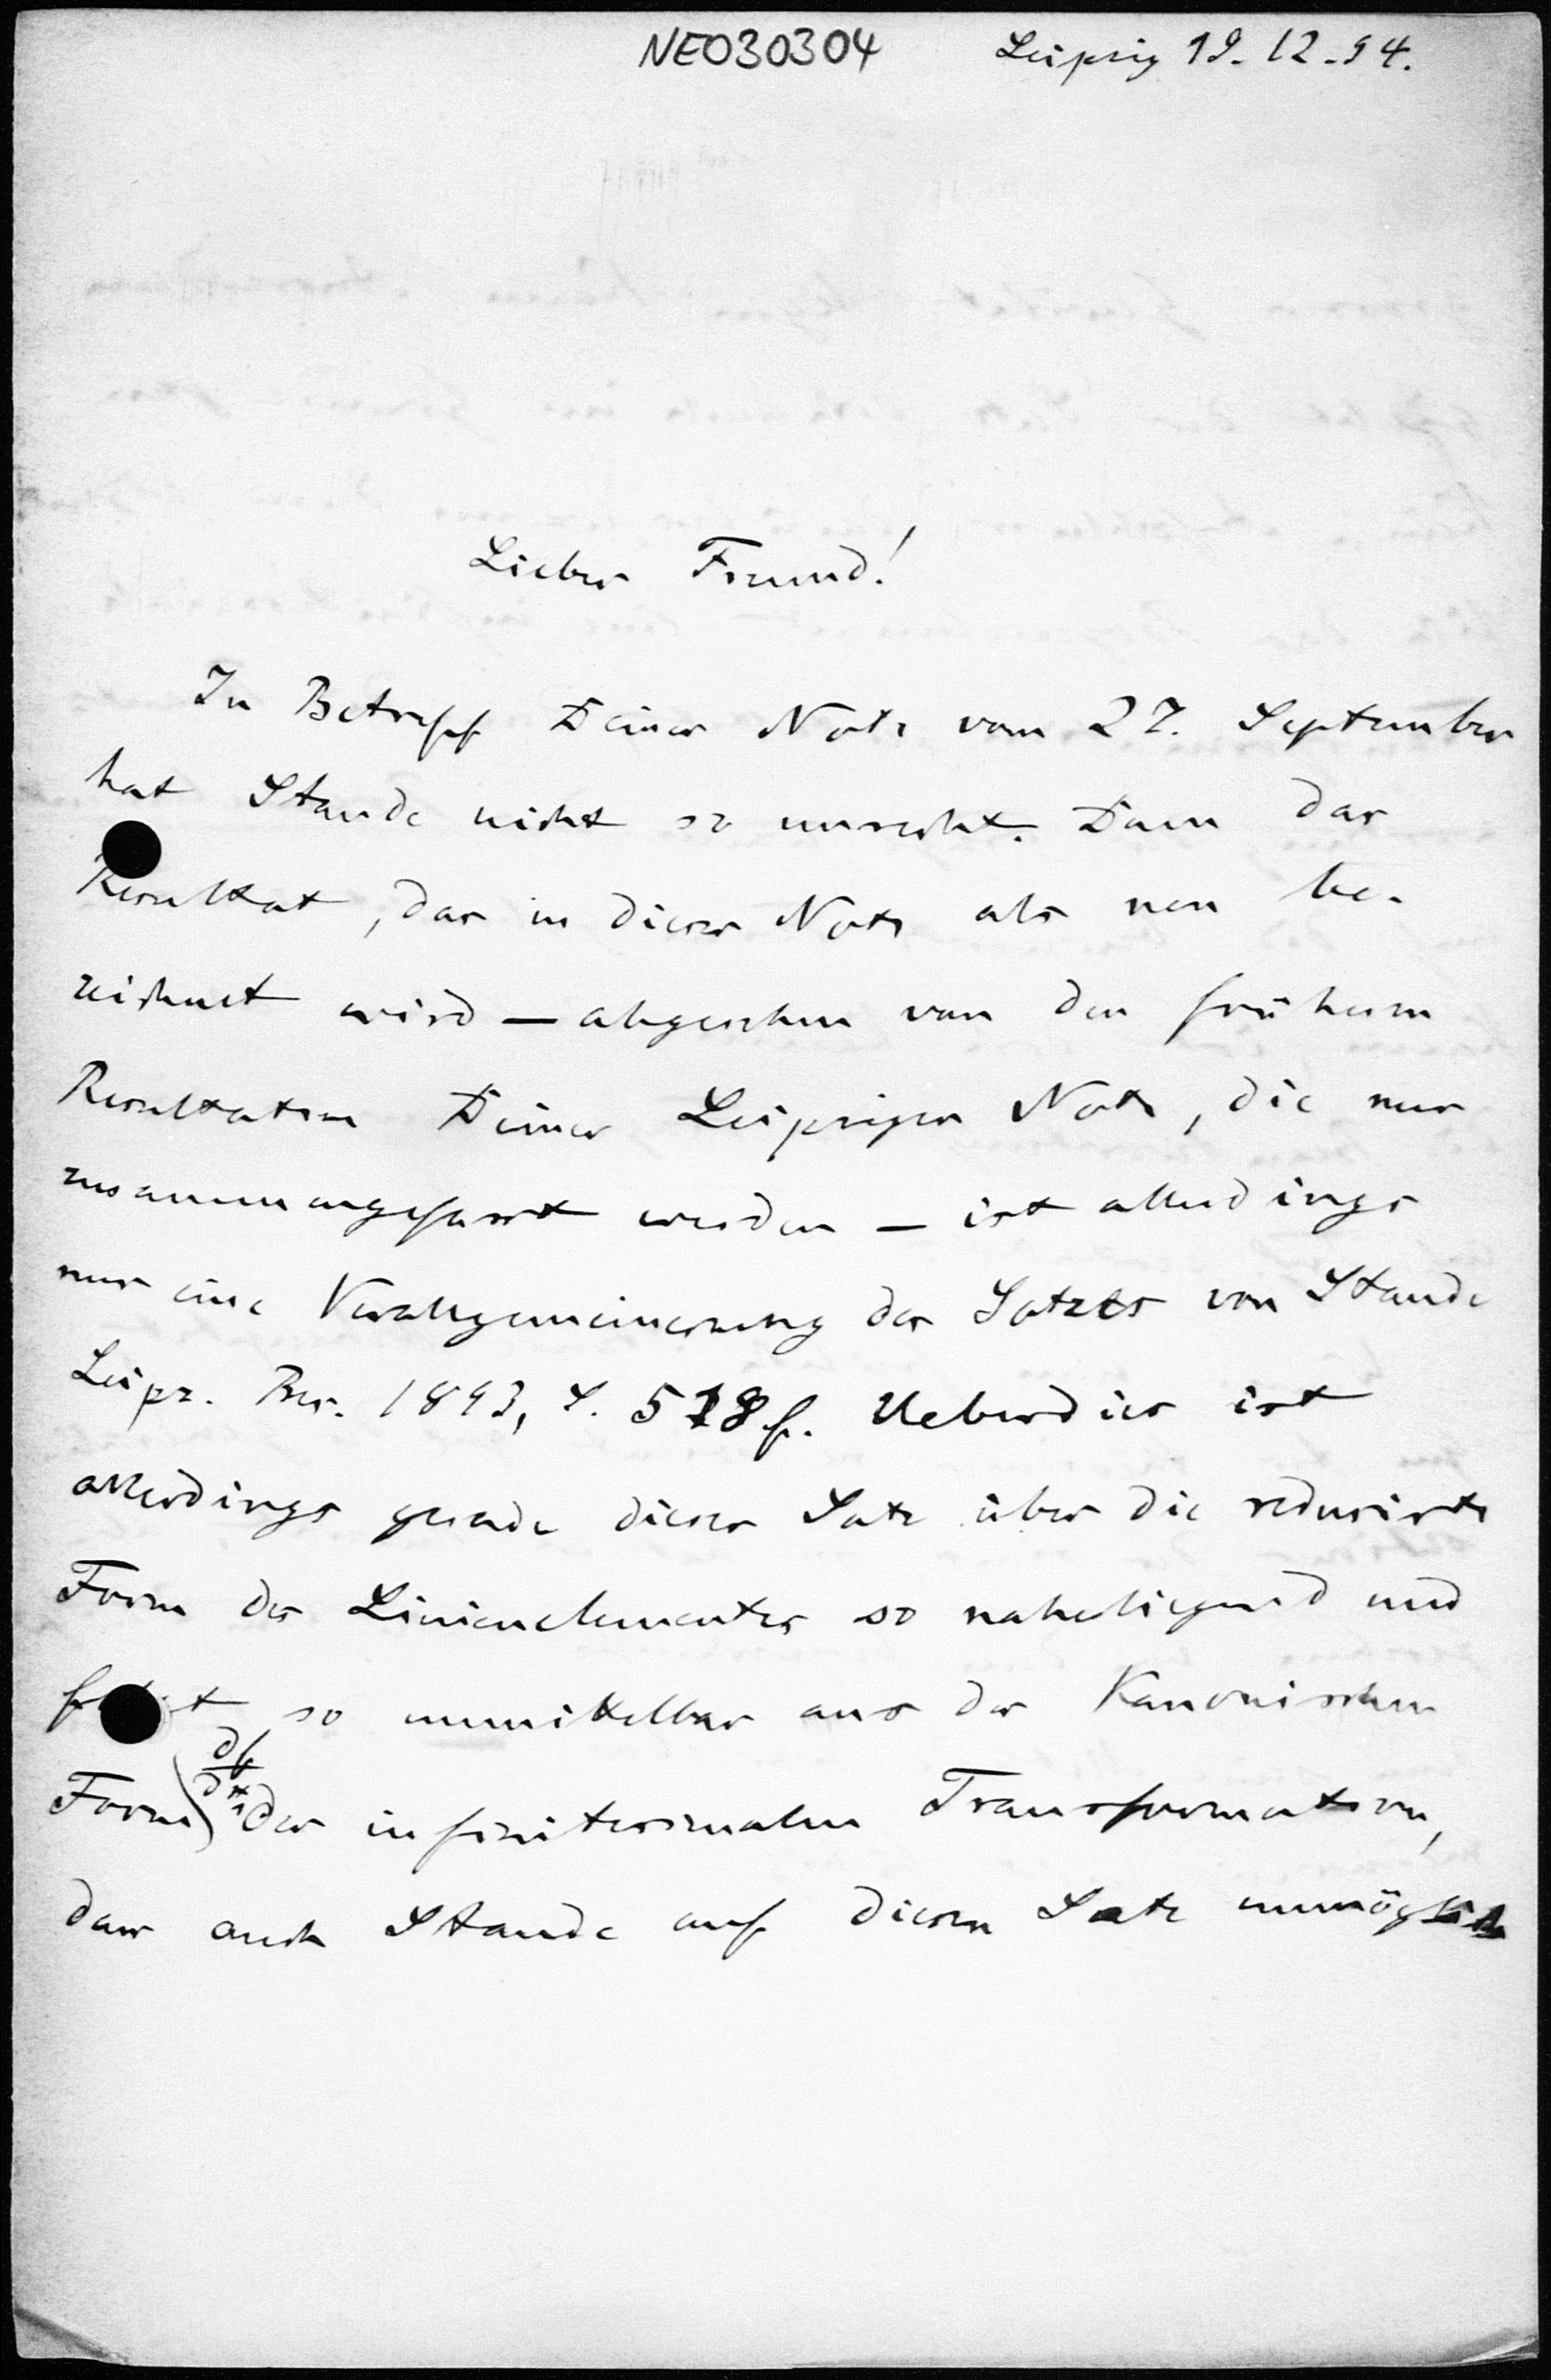 NE030304 Leipzig 19. 12. 94.
Lieber Freund!
In Betreff Deiner Note vom 27. September
hat Staude nicht so unrecht. Denn das
Resultat, das in dieser Note als neu be-
zeichnet wird — abgesehen von den früheren
Resultaten Deiner Leipziger Note, die nur
zusammengefasst werden — ist allerdings
nur eine Verallgemeinerung des Satzes von Staude
Leipz. Ber. 1893, S. 518 f. Ueberdies ist
allerdings gerade dieser Satz über die reduzirte
Form des Linienelementes so naheliegend und
folgt so unmittelbar aus der Kanonischen
Form (df/dx₁) der infinitesimalen Transformation,
dass auch Staude auf diesen Satz unmöglich